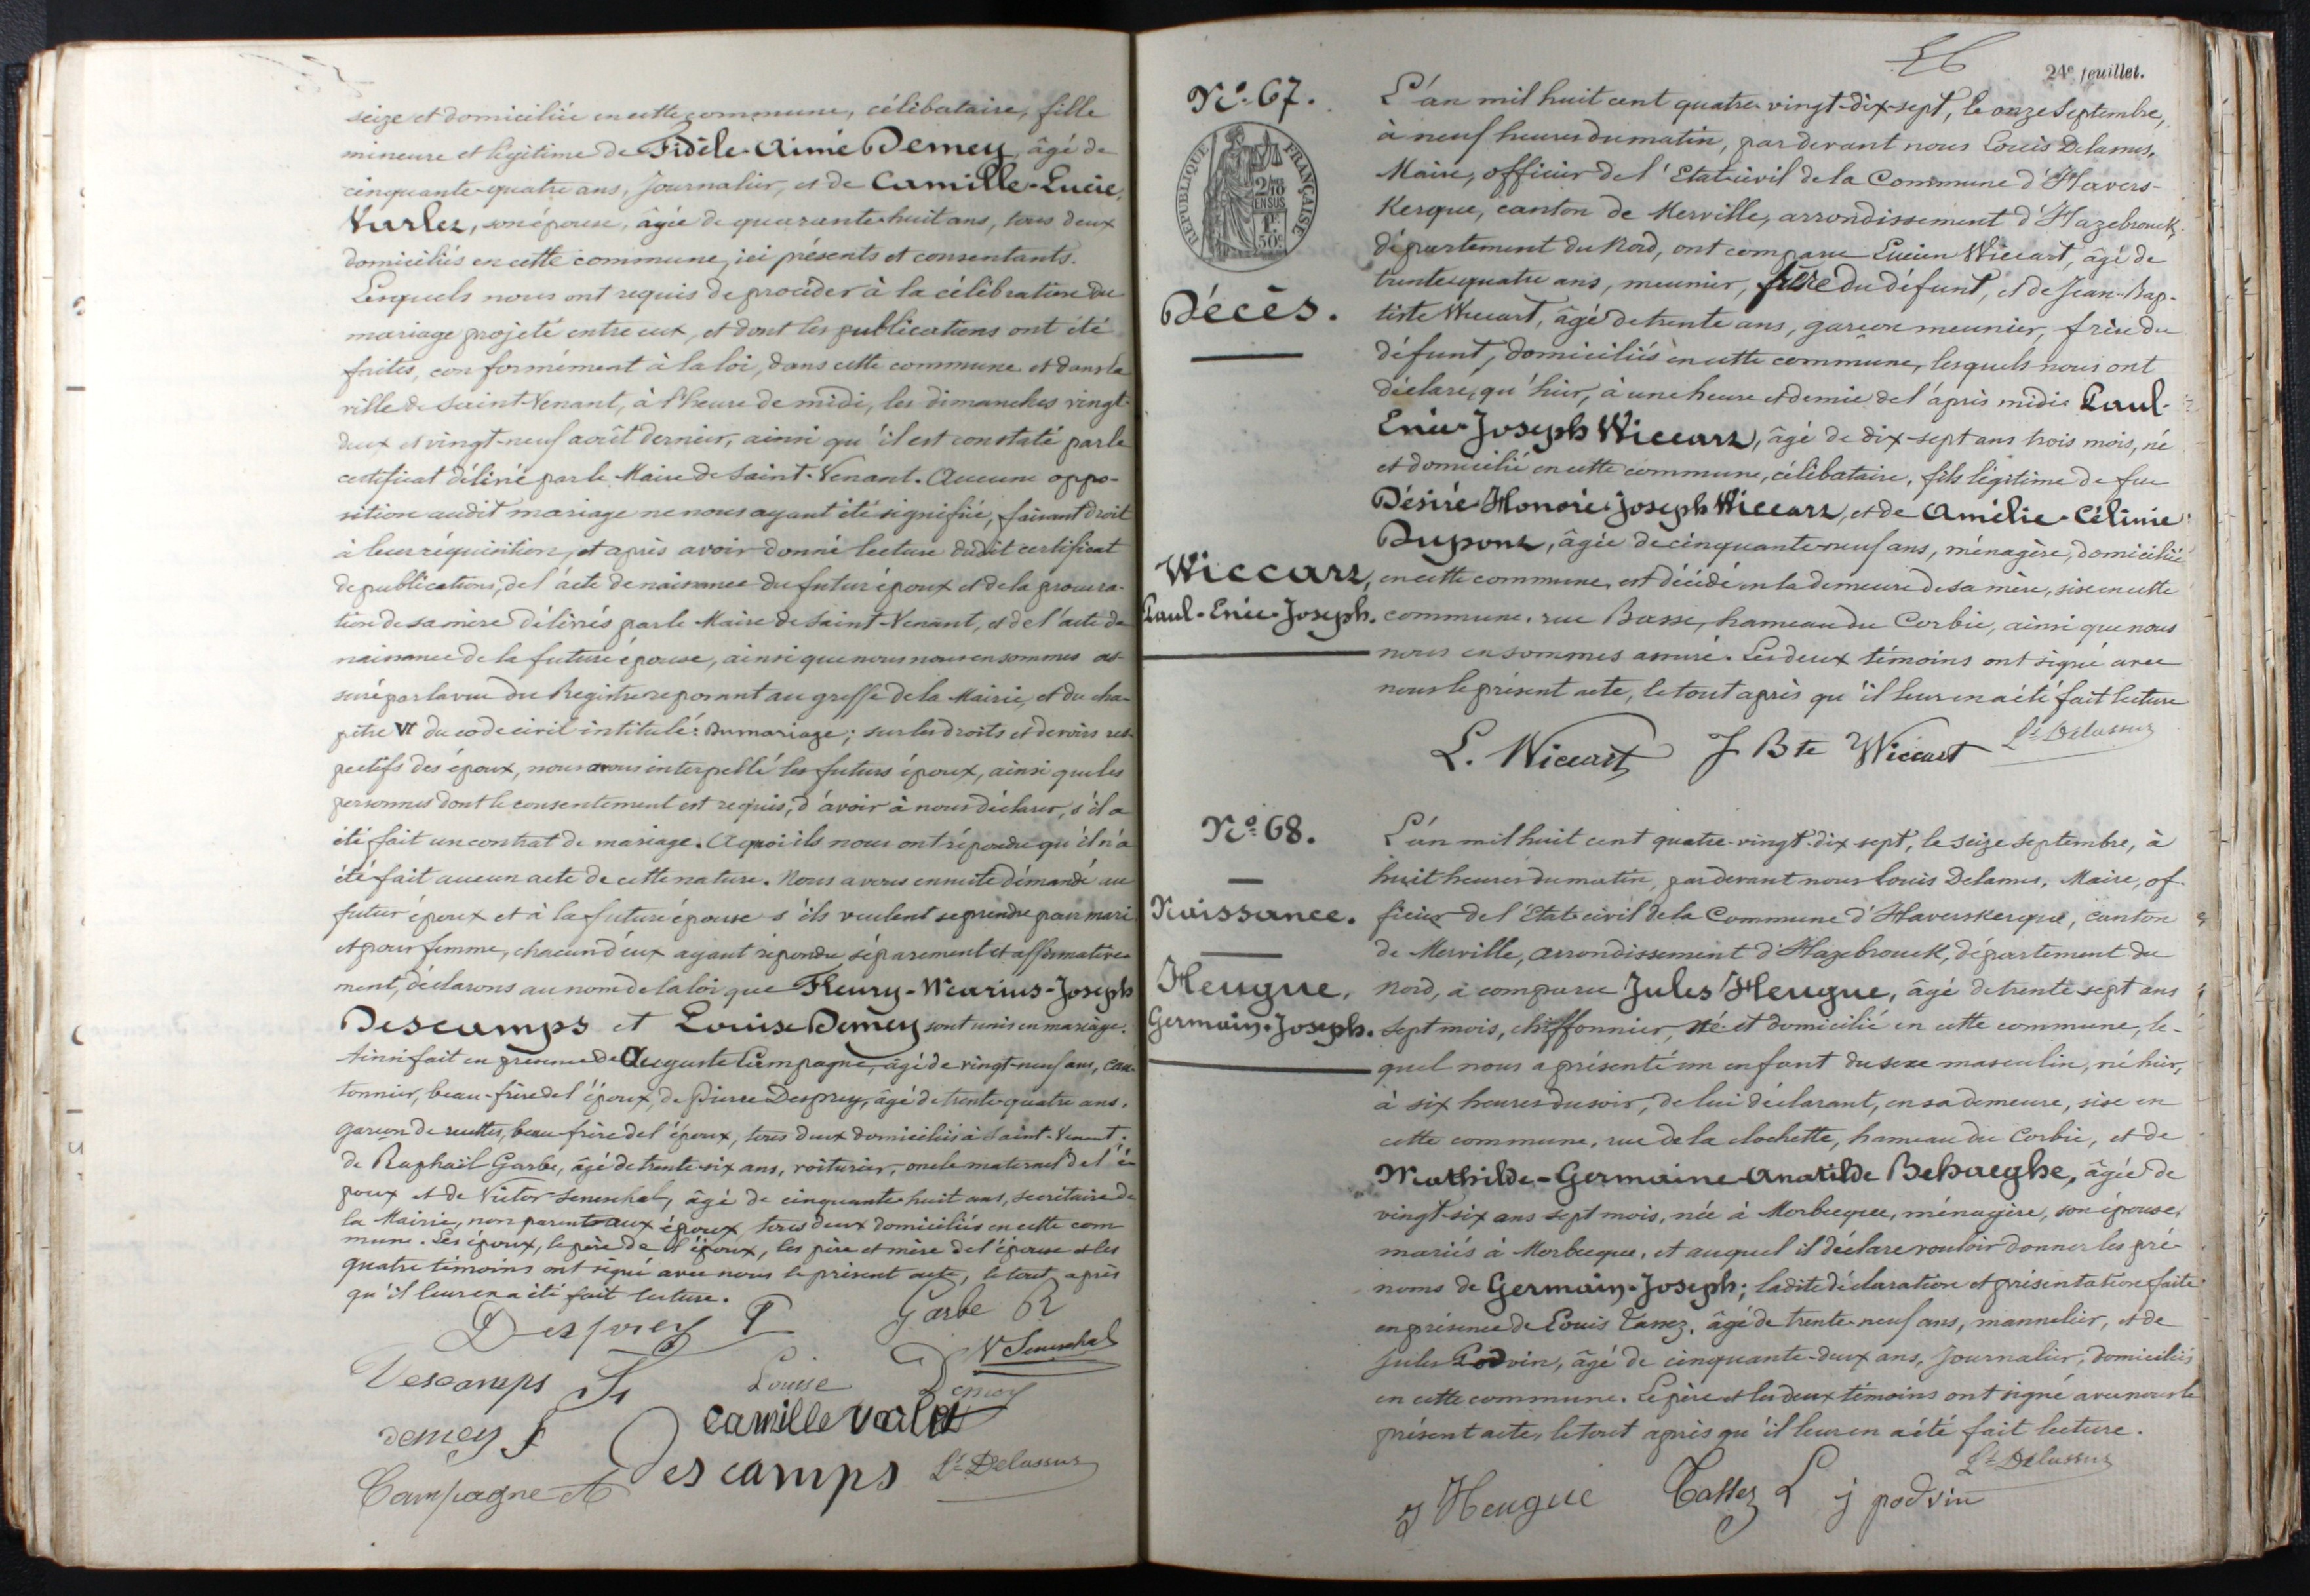 seize et domiciliée en cette commune, célibataire, fille
mineure et légitime de Fidèle-Aimé Demey, âgé de
cinquante-quatre ans, Journalier, et de Camille-Lucie
Varlez, son épouse, âgée de quarante-huit ans, tous deux
domiciliés en cette commune, ici présents et consentants.
Lesquels nous ont requis de procéder à la célébration du
mariage projeté entre eux, et dont les publications ont été
faites, conformément à la loi, dans cette commune et dans la
ville de Saint-Venant, à l'heure de midi, les dimanches vingt-
deux et vingt-neuf août dernier, ainsi qu'il est constaté par le
certificat délivré par le Maire de Saint-Venant. Aucune oppo-
sition audit mariage ne nous ayant été signifiée, faisant droit
à leur réquisition, et après avoir donné lecture dudit certificat
de publications, de l'acte de naissance du futur époux et de la procura-
tion de sa mère délivrés par le Maire de Saint-Venant, et de l'acte de
naissance de la future épouse, ainsi que nous nous en sommes as-
suré par la vue du Registre reposant au greffe de la Mairie, et du cha-
pitre VI du code civil intitulé: Du mariage; sur les droits et devoirs res-
pectifs des époux, nous avons interpellé les futurs époux, ainsi que les
personnes dont le consentement est requis, d'avoir à nous déclarer, s'il a
été fait un contrat de mariage. A quoi ils nous ont répondu qu'il n'a
été fait aucun acte de cette nature. Nous avons ensuite demandé au
futur époux et à la future épouse s'ils veulent se prendre pour mari
et pour femme, chacun d'eux ayant répondu séparément et affirmative-
ment, déclarons au nom de la loi que Fleury-Marius-Joseph
Descamps et Louise Demey sont unis en mariage.
Ainsi fait en présence de Auguste Campagne, âgé de vingt-neuf ans, can-
tonnier, beau-frère de l'époux, de Pierre Desprey, âgé de trente-quatre ans,
garçon de recettes, beau-frère de l'époux, tous deux domiciliés à Saint-Venant;
de Raphaël Garbe, âgé de trente-six ans, voiturier, oncle maternel de l'é-
poux et de Victor Seneschal, âgé de cinquante-huit ans, secrétaire de
la Mairie, non parent aux époux, tous deux domiciliés en cette com-
mune. Les époux, le père de l'époux, les père et mère de l'épouse et les
quatre témoins ont signé avec nous le présent acte, le tout après
qu'il leur en a été fait lecture.
Desprey P Garbe R
V Seneschal
Descamps Louise Demey
demey f camille varlet
Campagne A Descamps Ls Delassus
24e feuillet.
No 67.
RÉPUBLIQUE FRANÇAISE
2 10 EN SUS
1F 50c
Décès.
Wiccart,
Paul-Énée-Joseph.
L'an mil huit cent quatre-vingt-dix-sept, le onze Septembre,
à neuf heures du matin, par devant nous Louis Delassus,
Maire, officier de l'Etat-civil de la Commune d'Havers-
kerque, canton de Merville, arrondissement d'Hazebrouck,
département du Nord, ont comparu Lucien Wiccart, âgé de
trente-quatre ans, meunier, frère du défunt, et de Jean-Bap-
tiste Wiccart, âgé de trente ans, garçon meunier, frère du
défunt, domiciliés en cette commune, lesquels nous ont
déclaré, qu'hier, à une heure et demie de l'après midi Paul-
Énée-Joseph Wiccart, âgé de dix-sept ans trois mois, né
et domicilié en cette commune, célibataire, fils légitime de feu
Désiré-Honoré-Joseph Wiccart, et de Amélie-Célinie
Dupont, âgée de cinquante-neuf ans, ménagère, domiciliée
en cette commune, est décédé en la demeure de sa mère, sise en cette
commune, rue Basse, hameau du Corbie, ainsi que nous
nous en sommes assuré. Les deux témoins ont signé avec
nous le présent acte, le tout après qu'il leur en a été fait lecture
L. Wiccart J Bte Wiccart Ls Delassus
No 68.
Naissance.
Heugue,
Germain-Joseph.
L'an mil huit cent quatre-vingt-dix-sept, le seize septembre, à
huit heures du matin, par devant nous Louis Delassus, Maire, of-
ficier de l'Etat-civil de la Commune d'Haverskerque, canton
de Merville, arrondissement d'Hazebrouck, département du
Nord, à comparu Jules Heugue, âgé de trente-sept ans
sept mois, chiffonnier, né et domicilié en cette commune, le-
quel nous a présenté un enfant du sexe masculin, né hier,
à six heures du soir, de lui déclarant, en sa demeure, sise en
cette commune, rue de la clochette, hameau du Corbie, et de
Mathilde-Germaine-Anatilde Behaeghe, âgée de
vingt-six ans sept mois, née à Morbecque, ménagère, son épouse,
mariés à Morbecque, et auquel il déclare vouloir donner les pré-
noms de Germain-Joseph; ladite déclaration et présentation faite
en présence de Louis Tassez, âgé de trente-neuf ans, mannelier, et de
Jules Podvin, âgé de cinquante-deux ans, Journalier, domiciliés
en cette commune. Le père et les deux témoins ont signé avec nous le
présent acte, le tout après qu'il leur en a été fait lecture.
J Heugue Tassez L j podvin Ls Delassus